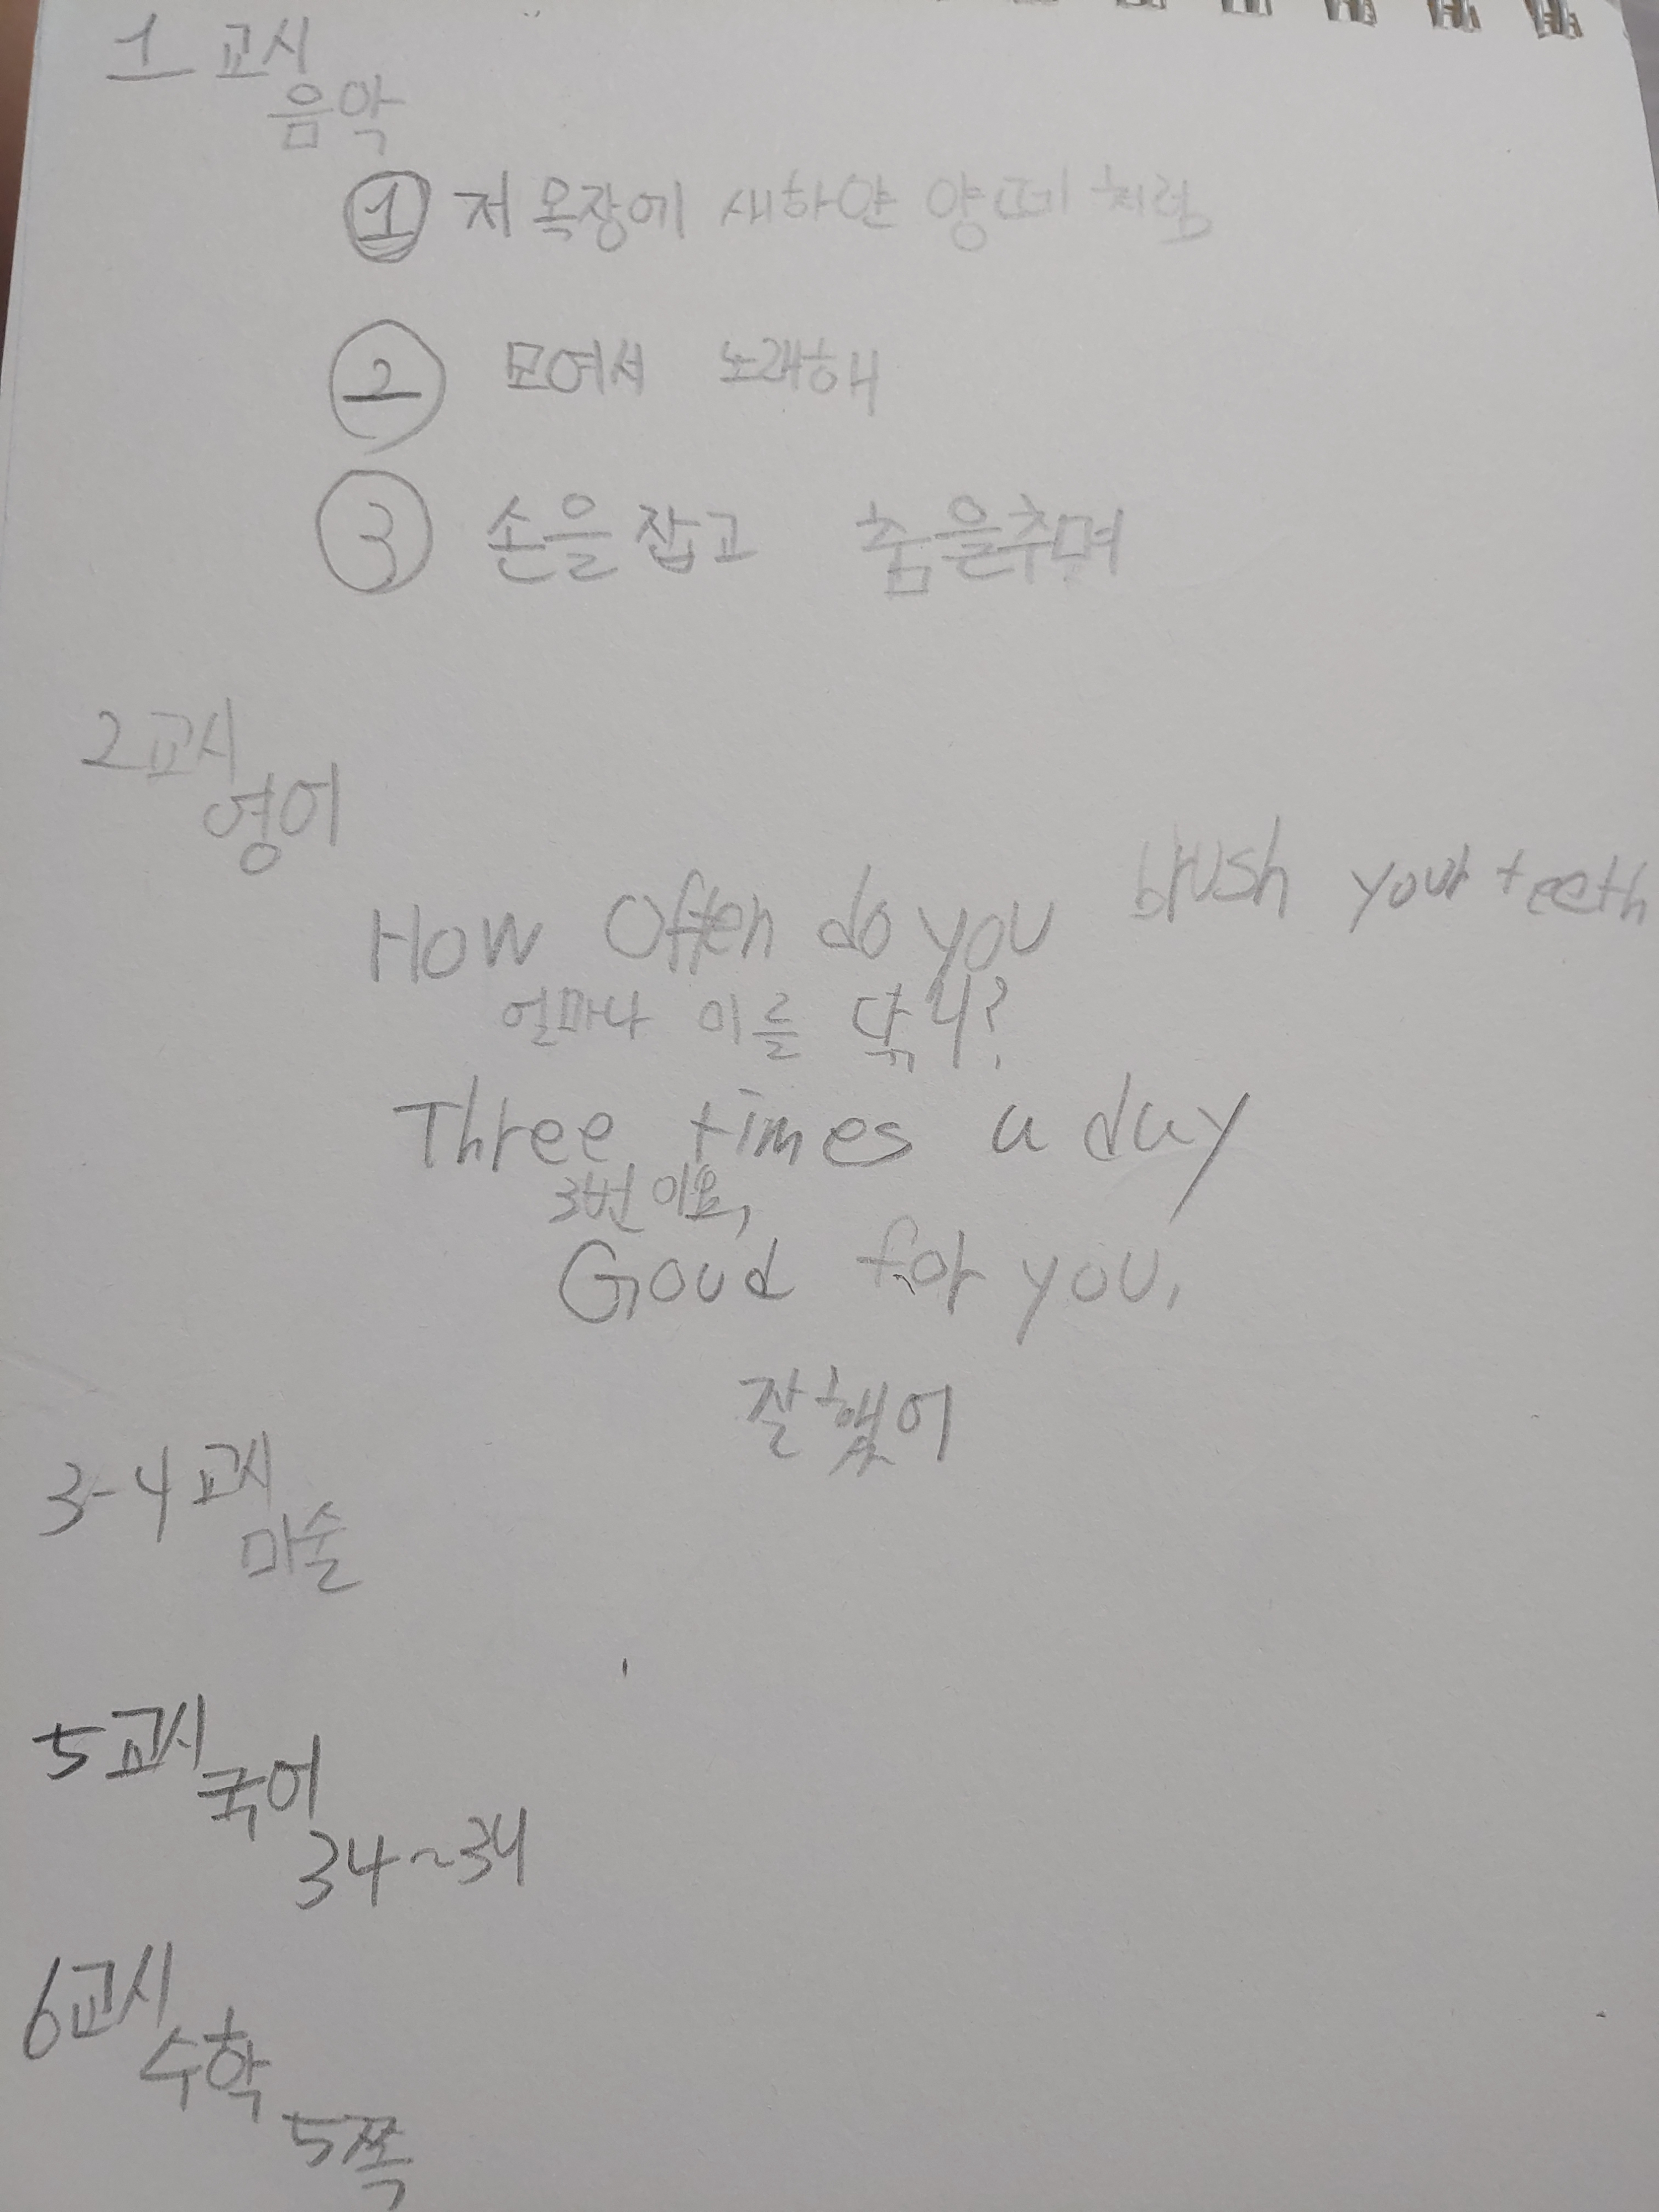 1 교시
음악
① 저 목장에 새하얀 양떼 처럼
② 모여서 노래해
③ 손을 잡고 춤을추며
2교시
영어
How often do you brush your teeth
얼마나 이를 닦니?
Three times a day
3번 이요,
Good for you.
잘했어
3-4 교시
미술
5교시
국어
34~34
6교시
수학
5쪽